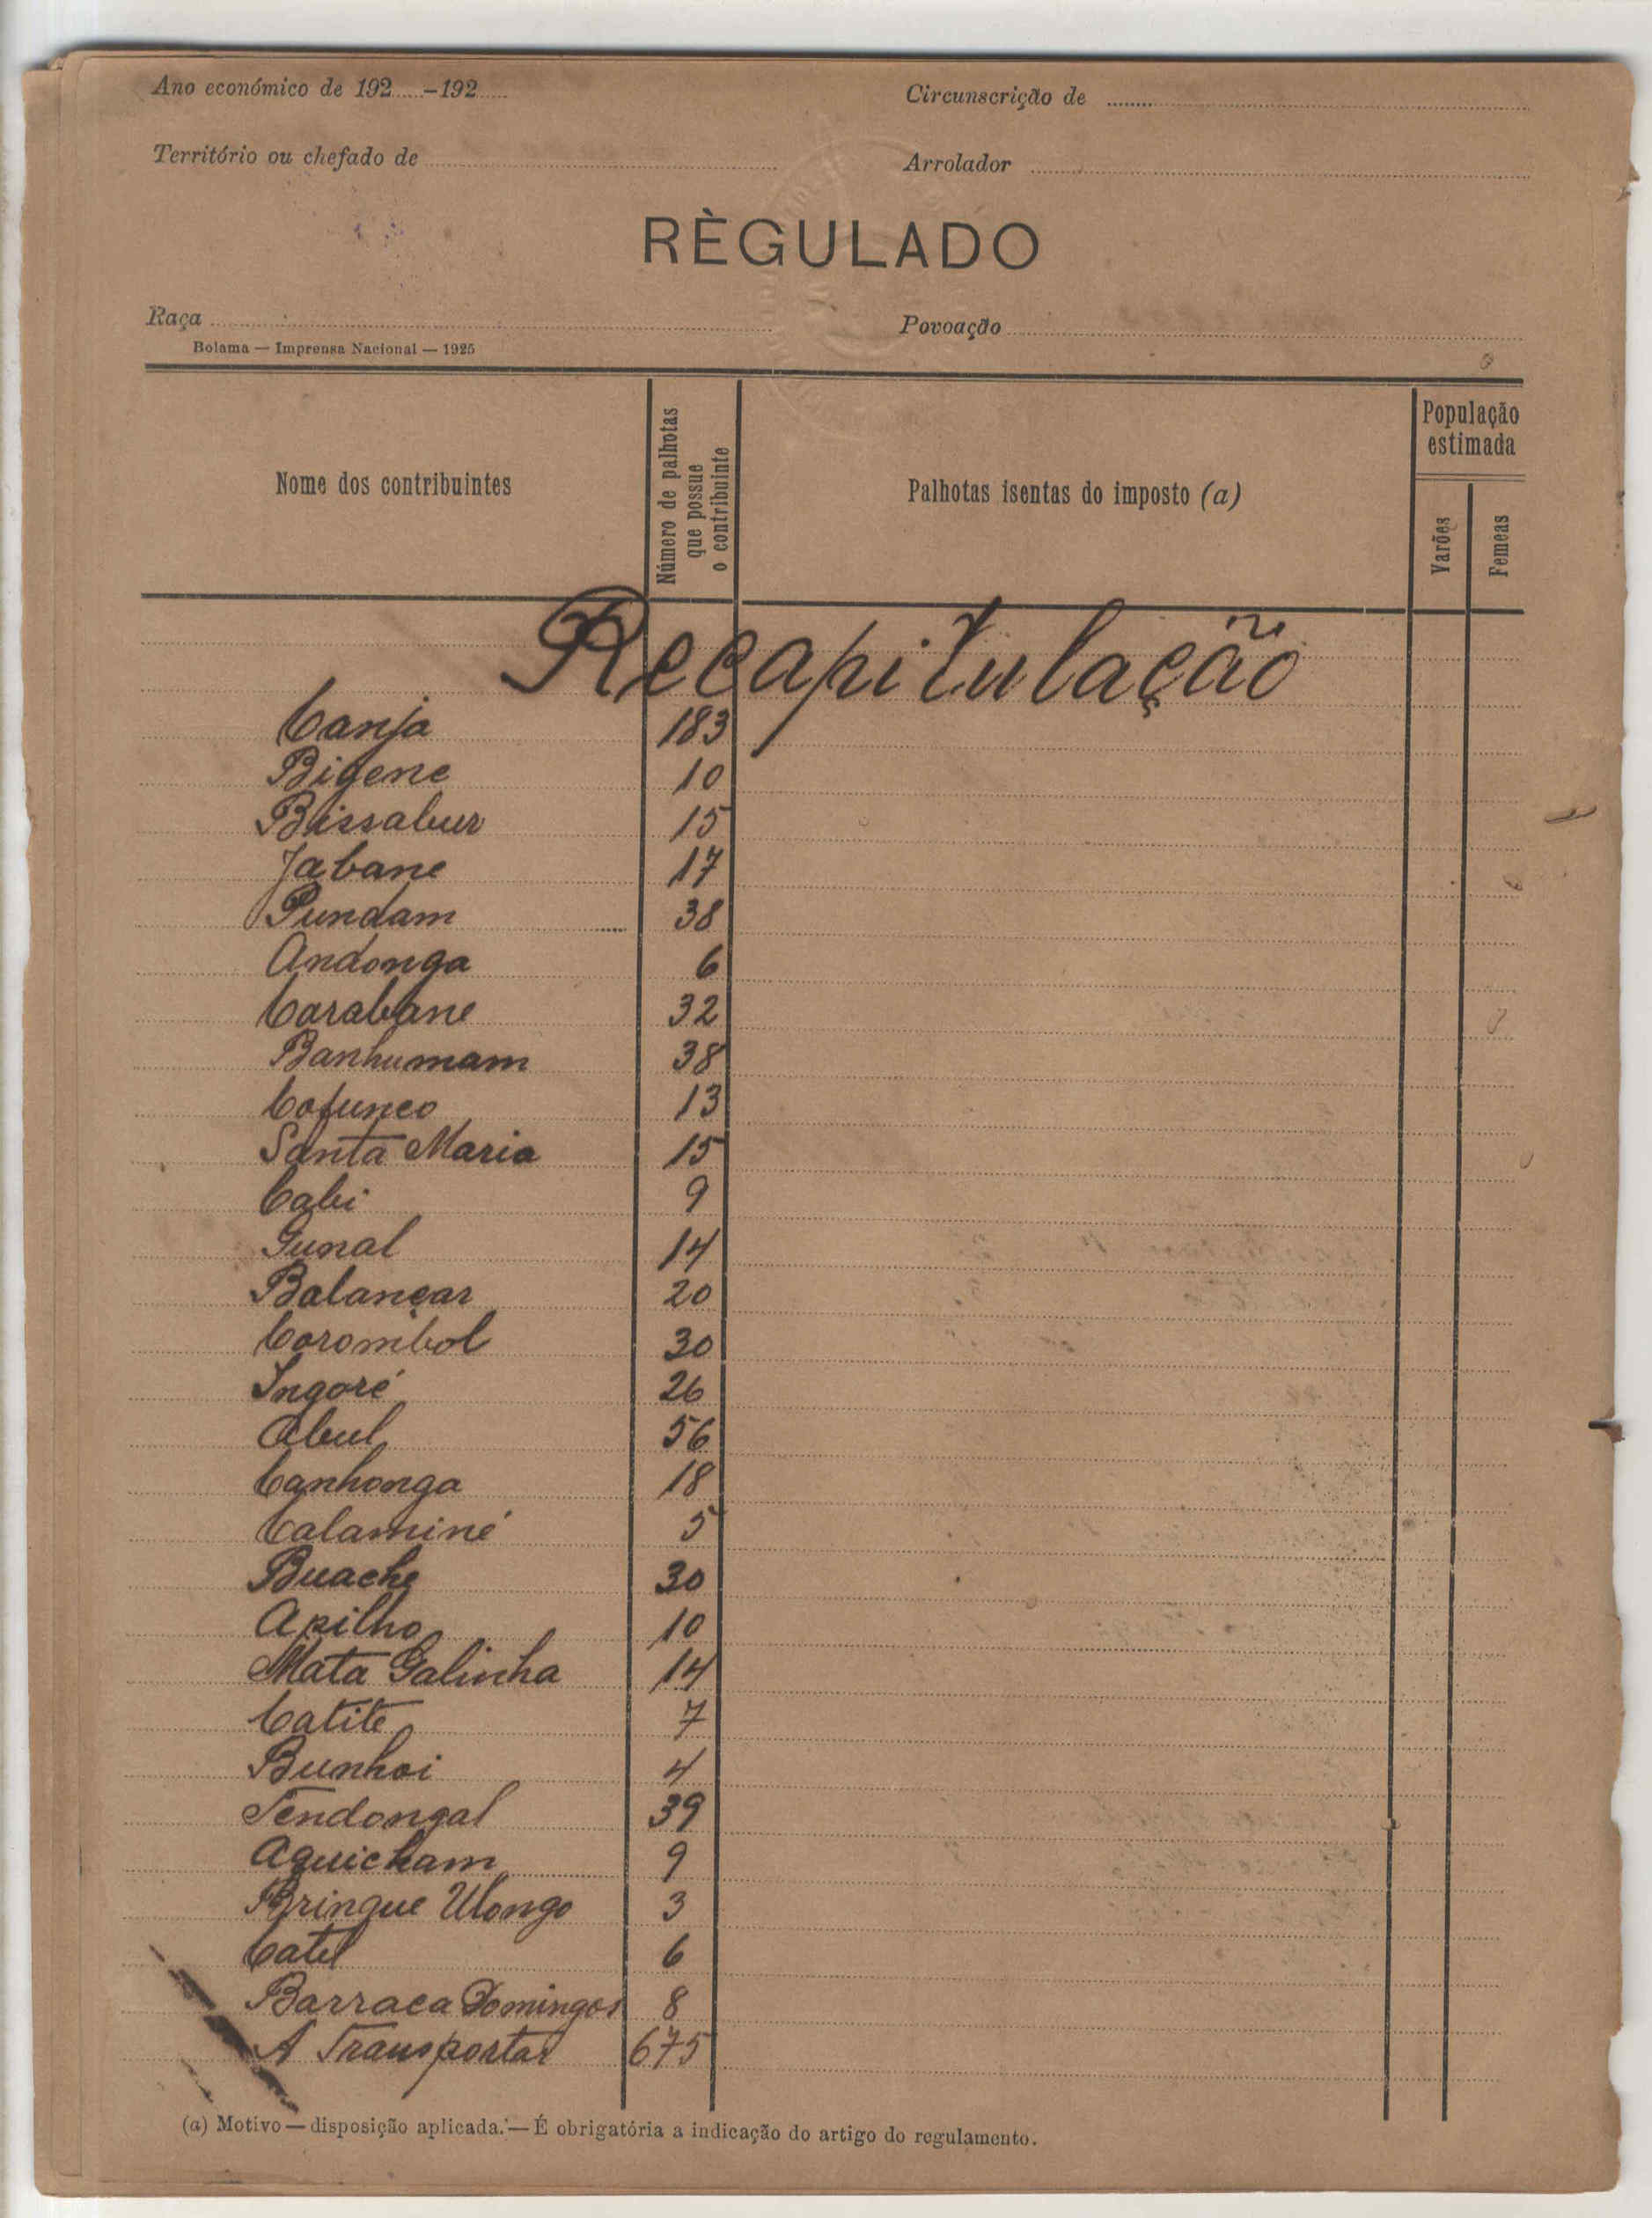 Ano económico de 192.....-192.....
Circunscrição de
Território ou chefado de
Arrolador
RÈGULADO
Raça
Povoação
Bolama — Imprensa Nacional — 1925
Nome dos contribuintes
Número de palhotas que possue o contribuinte
Palhotas isentas do imposto (a)
População estimada
Varões
Femeas
Recapitulação
Canja 183
Bigene 10
Bissabur 15
Jabane 17
Pundam 38
Andonga 6
Carabane 32
Banhumam 38
Cofunco 13
Santa Maria 15
Cabi 9
Gunal 14
Balançar 20
Corombol 30
Ingoré 26
Abul 56
Canhonga 18
Calaminé 5
Buache 30
Apilho 10
Mata Galinha 14
Catite 7
Bunhoi 4
Tendongal 39
Aguicham 9
Bringue Ulongo 3
Catel 6
Barraca Domingos 8
A Transportar 675
(a) Motivo — disposição aplicada. — É obrigatória a indicação do artigo do regulamento.